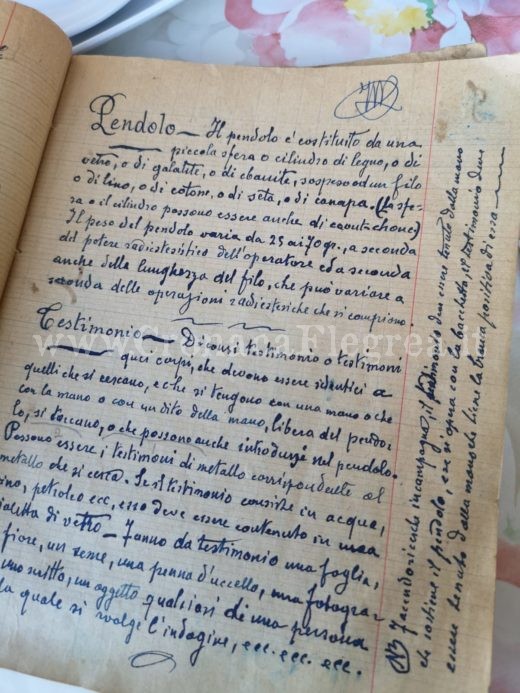 Pendolo — Il pendolo è costituito da una
piccola sfera o cilindro di legno, o di
vetro, o di galalite, o di ebanite, sospeso ad un filo
o di lino, o di cotone, o di seta, o di canapa. (La sfe-
ra o il cilindro possono essere anche di caoutchouc)
Il peso del pendolo varia da 25 ai 70 gr., a seconda
del potere radiestesistico dell'operatore ed a seconda
anche della lunghezza del filo, che può variare a
seconda delle operazioni radiestesiche che si compiono.
Testimonio — Diconsi testimonio o testimoni
quei corpi, che devono essere identici a
quelli che si cercano, e che si tengono con una mano o che
con la mano o con un dito della mano, libera del pendo-
lo, si toccano, o che possono anche introdursi nel pendolo.
Possono essere, i testimoni di metallo corrispondente al
metallo che si cerca. Se il testimonio consiste in acqua,
vino, petrolio ecc, esso deve essere contenuto in una
fialetta di vetro — Fanno da testimonio una foglia,
fiore, un seme, una penna d'uccello, una fotogra-
uno scritto, un oggetto qualsiasi di una persona
la quale si svolge l'indagine, ecc. ecc. ecc.
NB Facendo ricerche in campagna, il testimonio deve essere tenuto dalla mano
che sostiene il pendolo, e se si opera con la bacchetta, il testimonio deve
essere tenuto dalla mano che tiene la branca positiva di essa
www.CronacaFlegrea.it